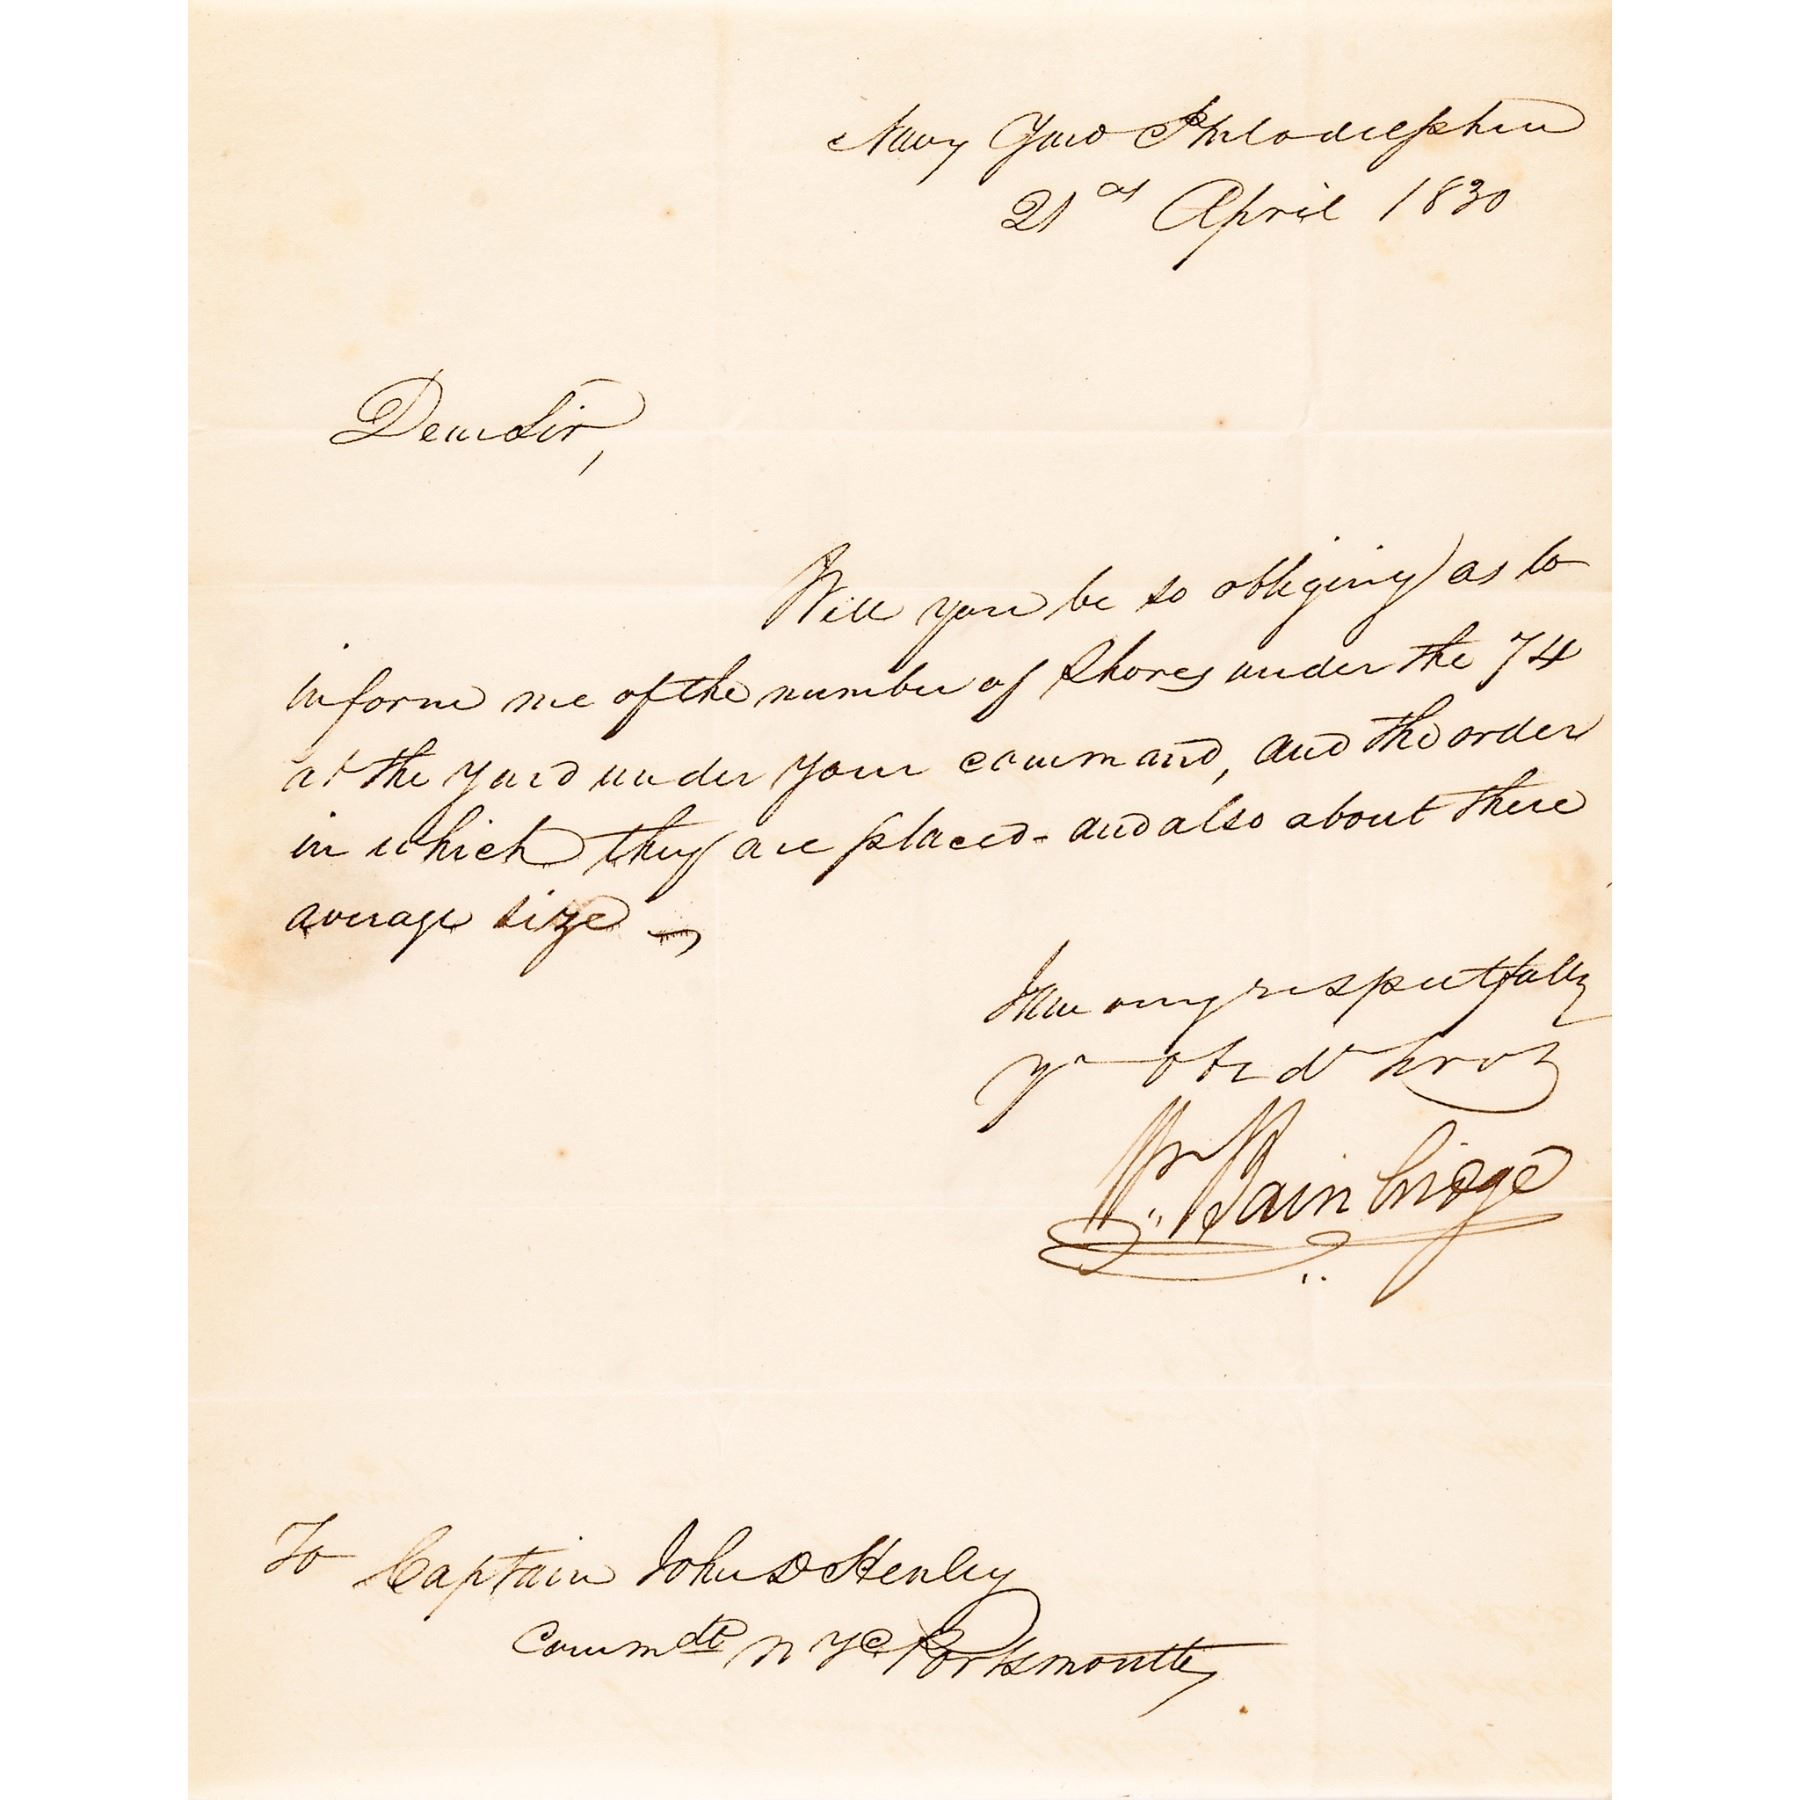 Navy Yard Philadelphia
21st April 1830
Dear Sir,
Will you be so obliging as to
inform me of the number of Shores under the 74
at the yard under your command, and the order
in which they are placed - and also about there
average size -
I am very respectfully
Yr obedt srvt
Wm Bainbridge
To Captain John D Henley
Commdt N Yd Portsmouth